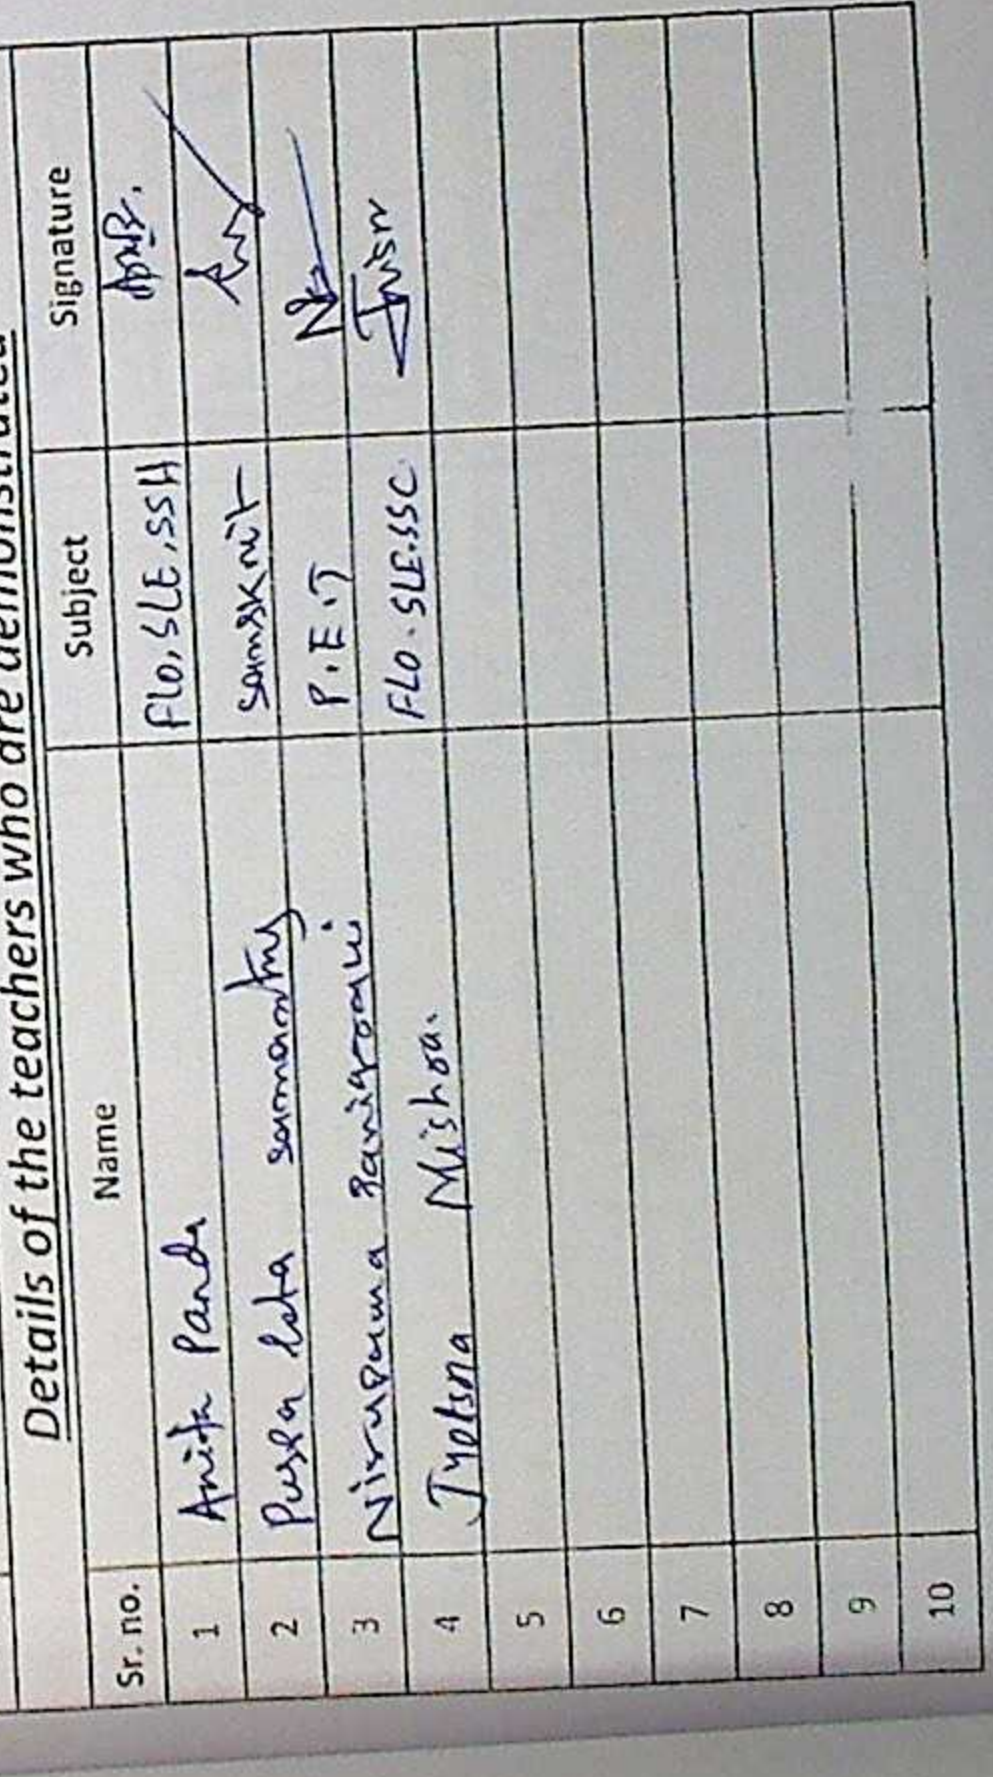 Details of the teachers who are demonstrated
Sr. no. Name Subject Signature
1 Anita Panda FLO, SLE, SSH
2 Puspa lata samantray Samskrit
3 Nirupama Panigrahi P.E.T
4 Jyotsna Mishra. FLO. SLE. SSC
5
6
7
8
9
10